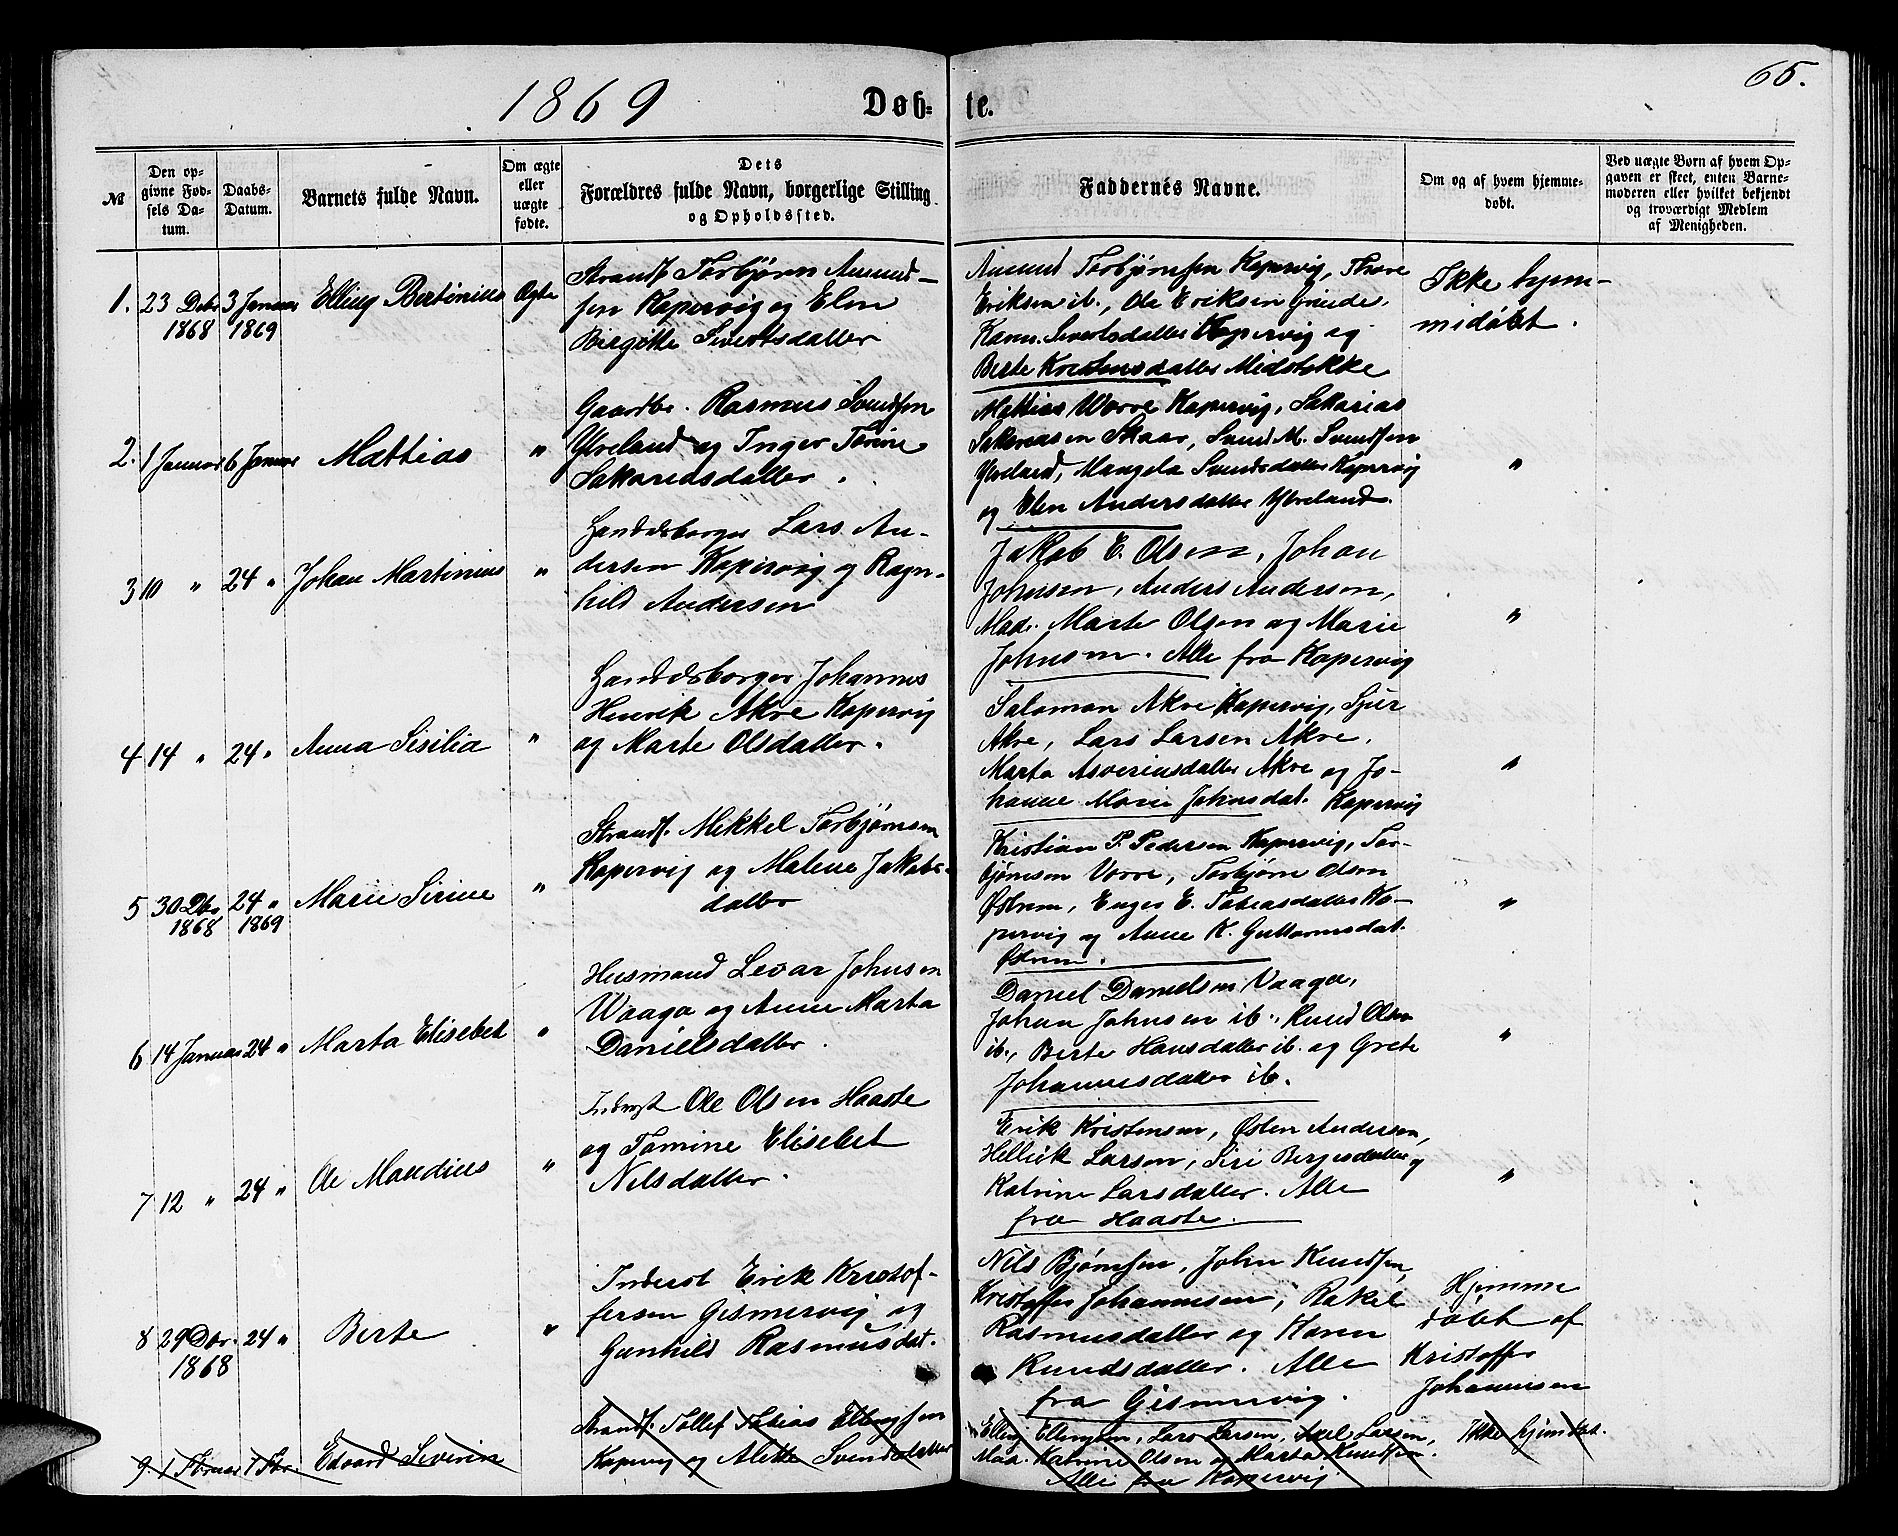 1869
Døb-
te.
65.
№
Den op-
givne Fød-
sels Da-
tum.
Daabs-
Datum.
Barnets fulde Navn.
Om ægte
eller
uægte
fødte.
Dets
Forældres fulde Navn, borgerlige Stilling
og Opholdssted.
Faddernes Navne.
Om og af hvem hjemme-
døbt.
Ved uægte Børn af hvem Op-
gaven er skeet, enten Barne-
moderen eller hvilket bekjendt
og troværdigt Medlem
af Menigheden.
1. 23 Debr 3 Januar Elling Bertinius Ægte
1868 1869
Strandf Torbjørn Amund-
sen Kopervig og Elen
Birgitte Sivertsdatter
Amund Torbjørnsen Kopervig, Thore
Eriksen ib., Ole Eriksen Grinde,
Karen Sivertsdatter Kopervig og
Berte Kristensdatter Midstøkke
Ikke hjem-
midøbt.
2. 1 Januar 6 Januar Mattias "
Gaardbr. Rasmus Svendsen
Ytreland og Inger Torine
Sakariasdatter.
Mattias Vorre Kopervig, Sakarias
Sakariasen Skaar, Svend M. Svendsen
Ytreland, Mangela Svendsdatter Kopervig
og Elen Andersdatter Ytreland.
"
3 10 " 24 " Johan Martinius "
Handelsborger Lars An-
dersen Kopervig og Ragn-
hild Andersen
Jakob E. Olsen, Johan
Johnsen, Anders Andersen,
Mad. Marte Olsen og Marie
Johnsen. Alle fra Kopervig
"
4 14 " 24 " Anna Sisilia "
Handelsborger Johannes
Henrik Akre Kopervig
og Marte Olsdatter.
Salomon Akre Kopervig, Sjur
Akre, Lars Larsen Akre,
Marta Asveriusdatter Akre og Jo-
hanne Marie Johnsdat. Kopervig
"
5 30 Dbr 24 " Marie Sirine "
1868 1869
Strandf. Mikkel Torbjørnsen
Kopervig og Malene Jakobs-
datter
Kristian P. Pedersen Kopervig, Tor-
bjørnsen Vorre, Torbjørn Olsen
Østrem, Enger E. Tobiasdatter Ko-
pervig og Anne K. Guttormsdat.
Østrem.
"
6 14 Januar 24 " Marta Elisebet "
Husmand Levar Johnsen
Waaga og Anne Marta
Danielsdatter.
Daniel Danielsen Vaage,
Johan Johnsen ib., Knud Olsen
ib., Berte Hansdatter ib. og Grete
Johannesdatter ib.
"
7 12 " 24 " Ole Mandius "
Inderst Ole Olsen Haaste
og Tomine Elisebet
Nilsdatter.
Erik Kristensen, Østen Andersen,
Hellik Larsen, Siri Bergesdatter og
Katrine Larsdatter. Alle
fra Haaste.
"
8 29 Dbr. 24 " Berte "
1868
Inderst Erik Kristof-
fersen Gismervig og
Gunhild Rasmusdat.
Nils Bjørnsen, John Knudsen,
Kristoffer Johannesen, Rakel
Rasmusdatter og Karen
Knudsdatter. Alle
fra Gismervig.
Hjemme
døbt af
Kristoffer
Johannesen
9. 1 Edvard Severin
Strandf. Tollef Tobias Ellingsen
Kopervig og Alette Svendsdatter
Elling Ellingsen, Lars Larsen, Larsen,
Mad. Katrine Olsen og Marta Knudsen.
Alle fra Kopervig
Ikke hjemdøbt.